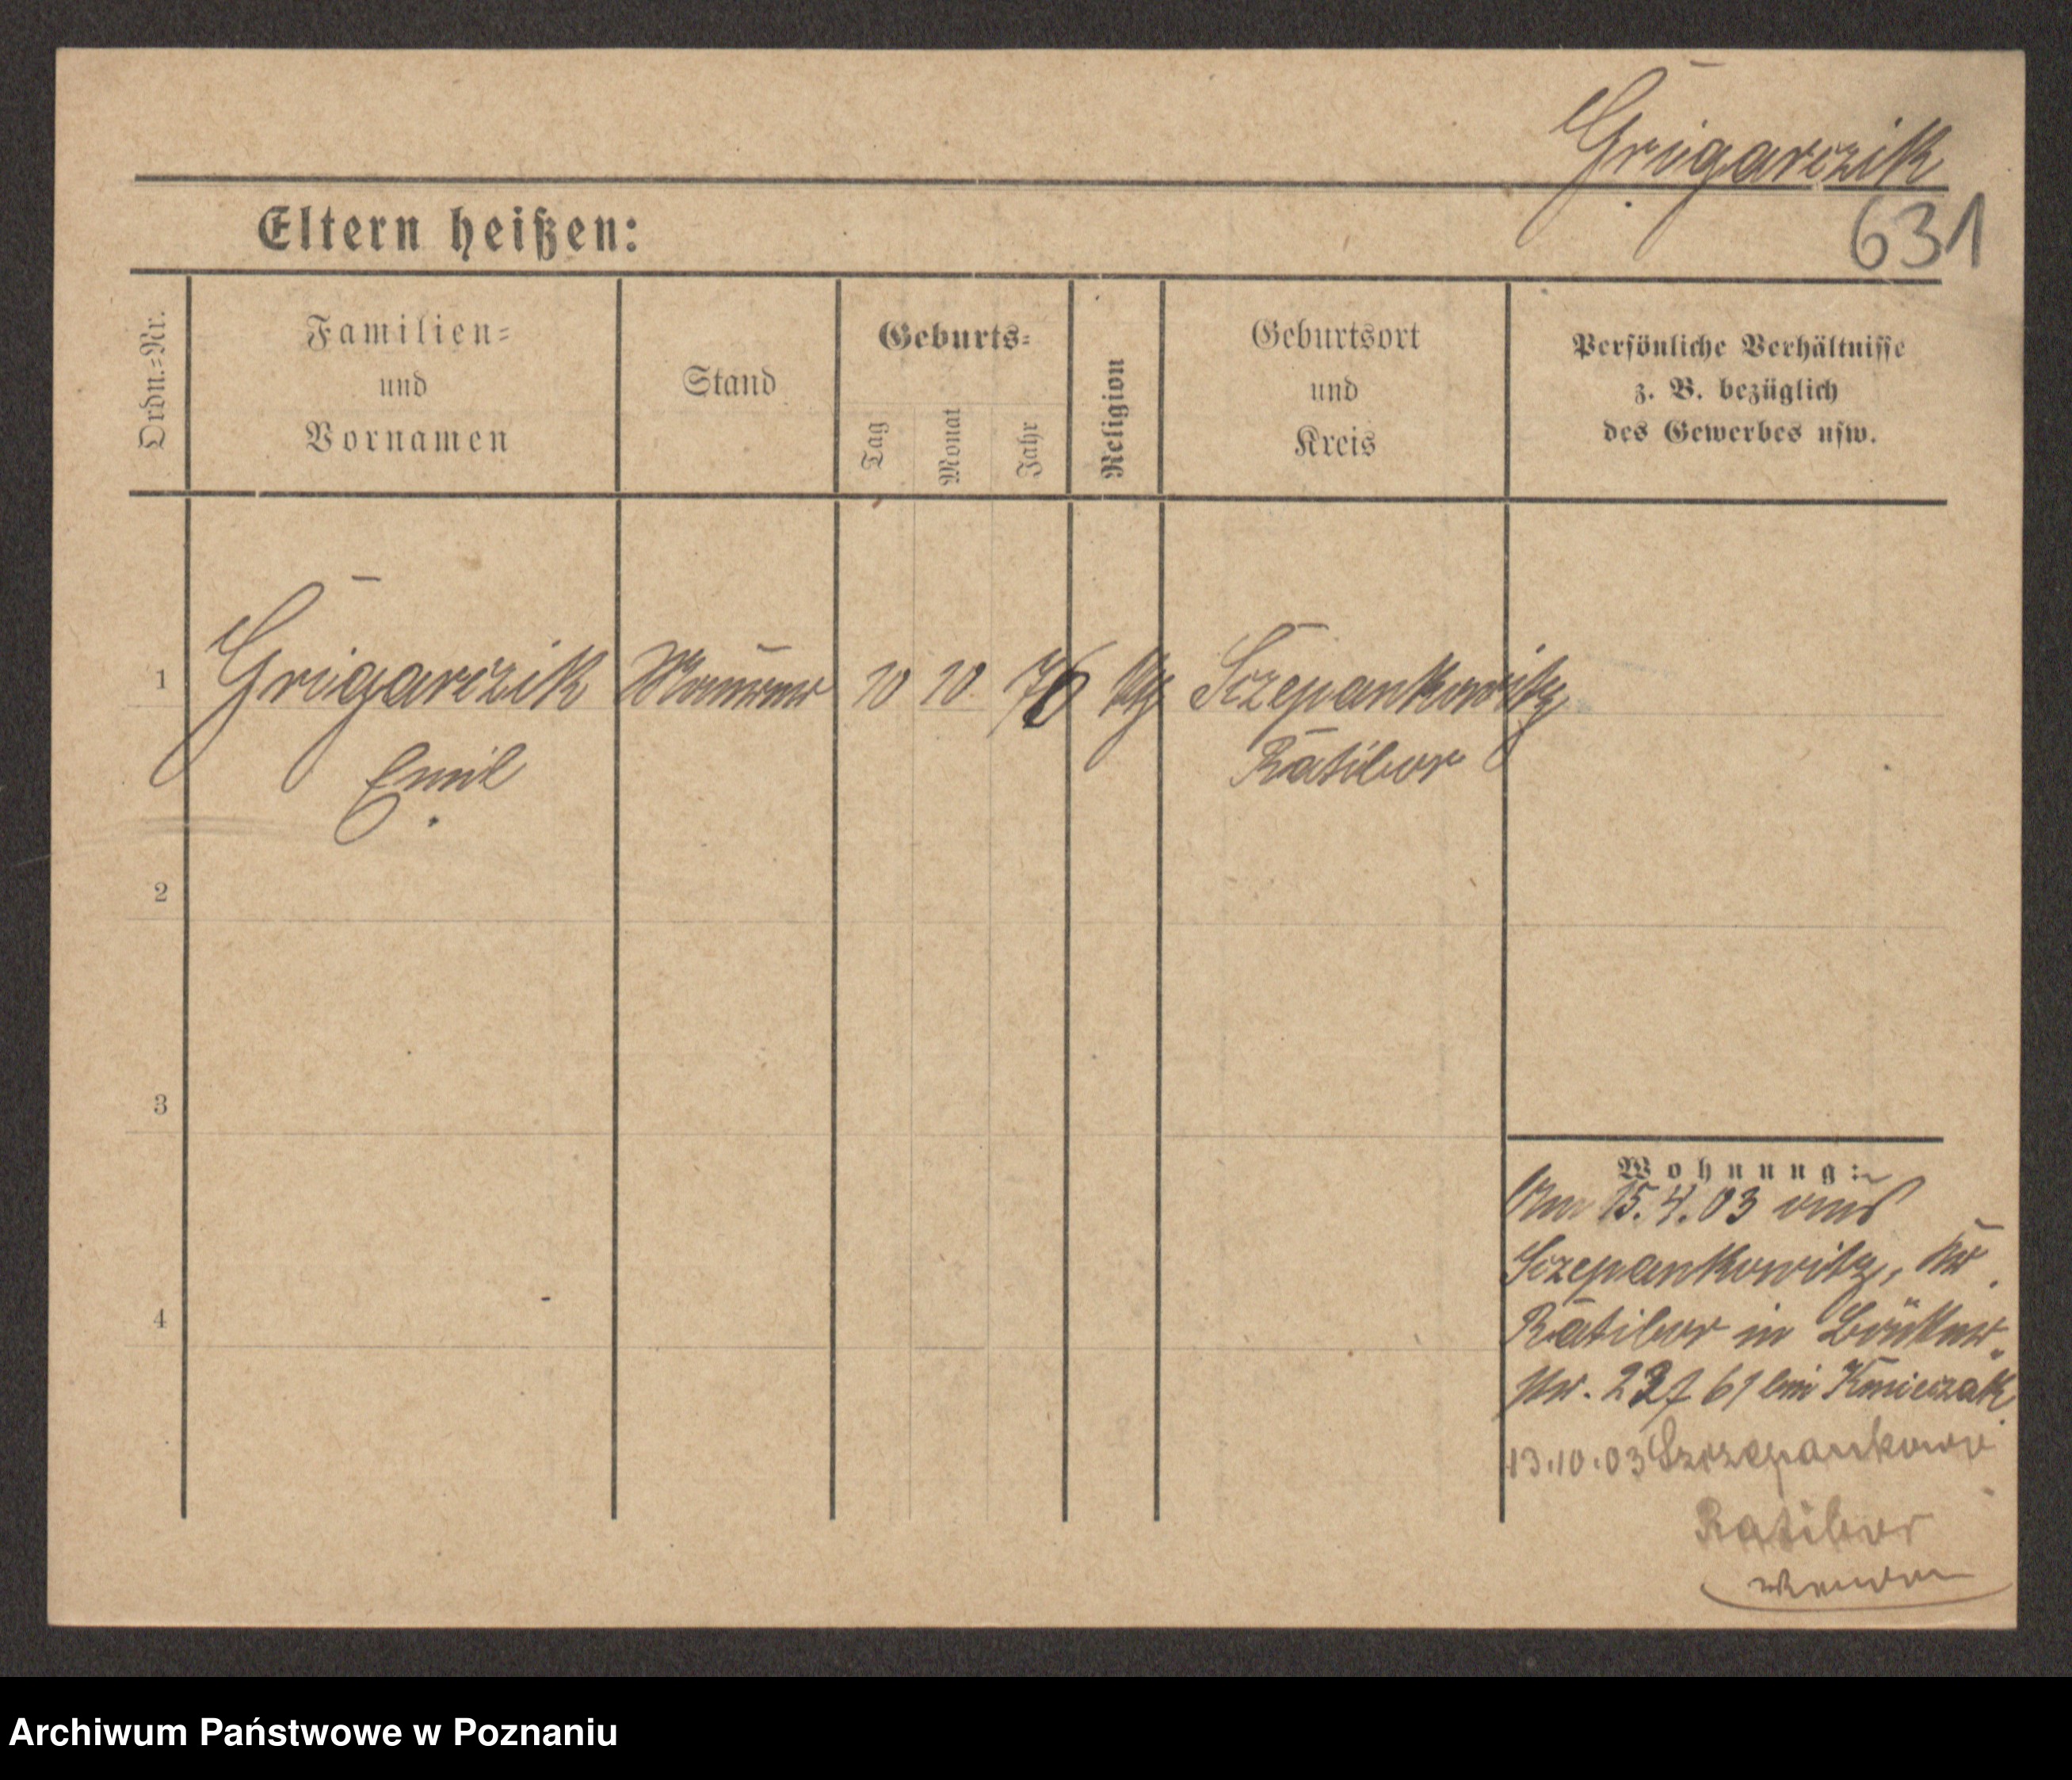 Grigarczik
631
Eltern heißen:
Ordn.=Nr.
Familien=
und
Vornamen
Stand
Geburts=
Tag
Monat
Jahr
Religion
Geburtsort
und
Kreis
Persönliche Verhältnisse
z. B. bezüglich
des Gewerbes usw.
1 Grigarczik Maurer 10 10 76 ktg Sczepankowitz
Emil Ratibor
2
3
4
Wohnung:
Am 15.4.03 aus
Sczepankowitz, Kr.
Ratibor in
Nr. 227 61 bei Kmieczak
13.10.03 Szczepankowi
Ratibor
Archiwum Państwowe w Poznaniu